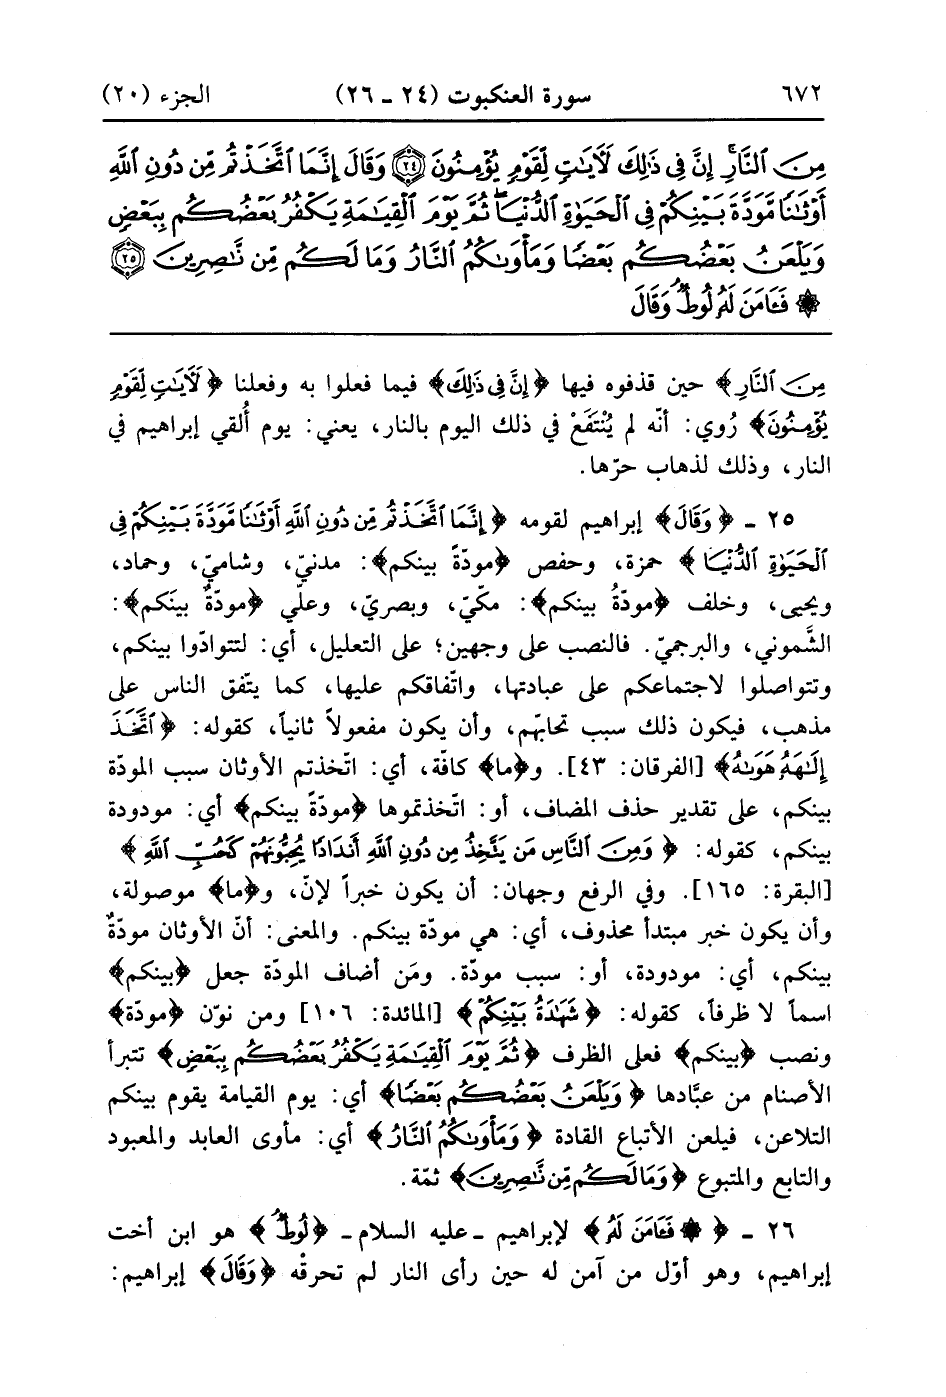 ٦٧٢ سورة العنكبوت (٢٤ ـ ٢٦) الجزء (٢٠)
مِنَ ٱلنَّارِۚ إِنَّ فِى ذَٰلِكَ لَأٓيَٰتٍ لِّقَوْمٍ يُؤْمِنُونَ ﴿٢٤﴾ وَقَالَ إِنَّمَا ٱتَّخَذْتُم مِّن دُونِ ٱللَّهِ
أَوْثَٰنًا مَّوَدَّةَ بَيْنِكُمْ فِى ٱلْحَيَوٰةِ ٱلدُّنْيَاۖ ثُمَّ يَوْمَ ٱلْقِيَٰمَةِ يَكْفُرُ بَعْضُكُم بِبَعْضٍ
وَيَلْعَنُ بَعْضُكُم بَعْضًا وَمَأْوَىٰكُمُ ٱلنَّارُ وَمَا لَكُم مِّن نَّٰصِرِينَ ﴿٢٥﴾
۞ فَـَٔامَنَ لَهُۥ لُوطٌۘ وَقَالَ
مِنَ ٱلنَّارِ﴾ حين قذفوه فيها ﴿إِنَّ فِى ذَٰلِكَ﴾ فيما فعلوا به وفعلنا ﴿لَأٓيَٰتٍ لِّقَوْمٍ
يُؤْمِنُونَ﴾ رُوي: أنّه لم يُنْتَفَعْ في ذلك اليوم بالنار، يعني: يوم أُلقي إبراهيم في
النار، وذلك لذهاب حرّها.
٢٥ ـ ﴿وَقَالَ﴾ إبراهيم لقومه ﴿إِنَّمَا ٱتَّخَذْتُم مِّن دُونِ ٱللَّهِ أَوْثَٰنًا مَّوَدَّةَ بَيْنِكُمْ فِى
ٱلْحَيَوٰةِ ٱلدُّنْيَا﴾ حمزة، وحفص ﴿مودّةً بينكم﴾: مدنيّ، وشاميّ، وحماد،
ويحيى، وخلف ﴿مودّةُ بينكم﴾: مكّيّ، وبصريّ، وعلّي ﴿مودّةٌ بينَكم﴾:
الشَّموني، والبرجميّ. فالنصب على وجهين؛ على التعليل، أي: لتتوادّوا بينكم،
وتتواصلوا لاجتماعكم على عبادتها، واتّفاقكم عليها، كما يتّفق الناس على
مذهب، فيكون ذلك سبب تحابّهم، وأن يكون مفعولاً ثانياً، كقوله: ﴿ٱتَّخَذَ
إِلَٰهَهُۥ هَوَىٰهُ﴾ [الفرقان: ٤٣]. و﴿ما﴾ كافّة، أي: اتّخذتم الأوثان سبب المودّة
بينكم، على تقدير حذف المضاف، أو: اتّخذتموها ﴿مودّةً بينكم﴾ أي: مودودة
بينكم، كقوله: ﴿وَمِنَ ٱلنَّاسِ مَن يَتَّخِذُ مِن دُونِ ٱللَّهِ أَندَادًا يُحِبُّونَهُمْ كَحُبِّ ٱللَّهِ﴾
[البقرة: ١٦٥]. وفي الرفع وجهان: أن يكون خبراً لإنّ، و﴿ما﴾ موصولة،
وأن يكون خبر مبتدأ محذوف، أي: هي مودّة بينكم. والمعنى: أنّ الأوثان مودّةٌ
بينكم، أي: مودودة، أو: سبب مودّة. ومَن أضاف المودّة جعل ﴿بينكم﴾
اسماً لا ظرفاً، كقوله: ﴿شَهَٰدَةُ بَيْنِكُمْ﴾ [المائدة: ١٠٦] ومن نوّن ﴿مودّة﴾
ونصب ﴿بينكم﴾ فعلى الظرف ﴿ثُمَّ يَوْمَ ٱلْقِيَٰمَةِ يَكْفُرُ بَعْضُكُم بِبَعْضٍ﴾ تتبرأ
الأصنام من عبَّادها ﴿وَيَلْعَنُ بَعْضُكُم بَعْضًا﴾ أي: يوم القيامة يقوم بينكم
التلاعن، فيلعن الأتباع القادة ﴿وَمَأْوَىٰكُمُ ٱلنَّارُ﴾ أي: مأوى العابد والمعبود
والتابع والمتبوع ﴿وَمَا لَكُم مِّن نَّٰصِرِينَ﴾ ثمّة.
٢٦ ـ ﴿۞ فَـَٔامَنَ لَهُۥ﴾ لإبراهيم ـ عليه السلام ـ ﴿لُوطٌۘ﴾ هو ابن أخت
إبراهيم، وهو أوّل من آمن له حين رأى النار لم تحرقْه ﴿وَقَالَ﴾ إبراهيم: